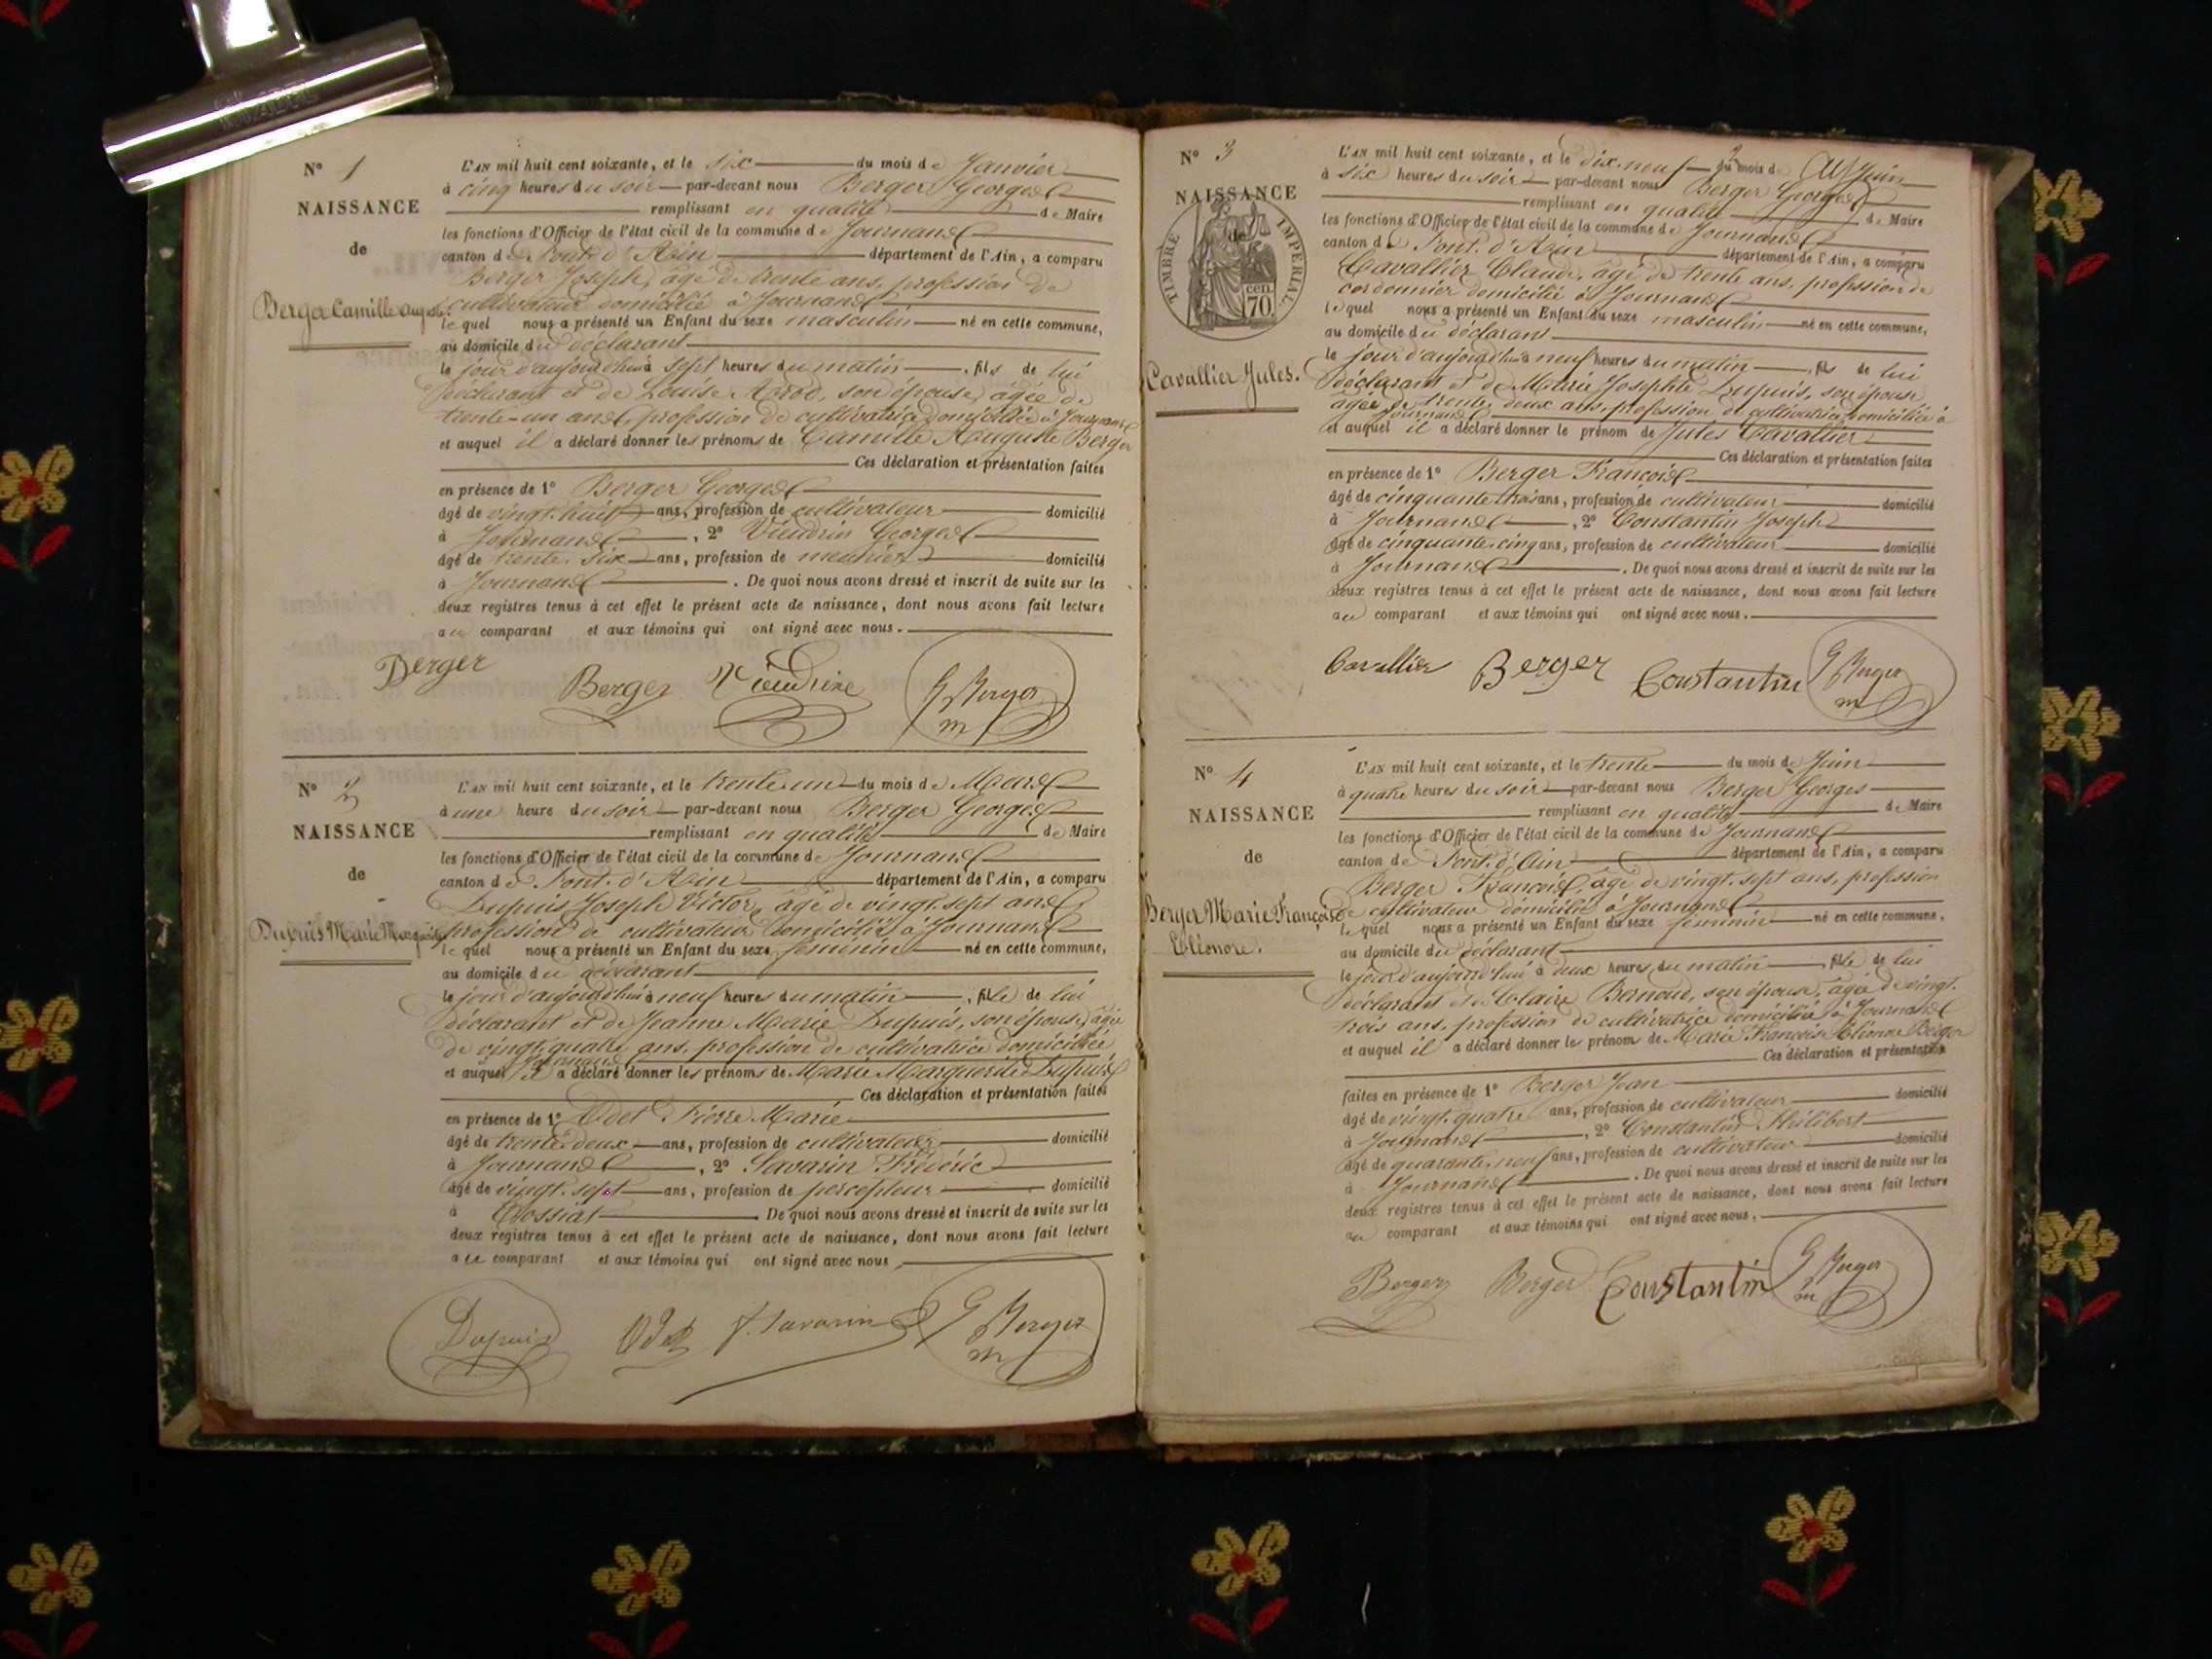 N° 1
NAISSANCE
de
Berger Camille Auguste.
L'AN mil huit cent soixante, et le six du mois de Janvier
à cinq heures du soir par-devant nous Berger Georges
remplissant en qualité de Maire
les fonctions d'Officier de l'état civil de la commune de Journans
canton de Pont d'Ain département de l'Ain, a comparu
Berger Joseph, âgé de trente ans, profession de
cultivateur domicilié à Journans
lequel nous a présenté un Enfant du sexe masculin né en cette commune,
au domicile du déclarant
le jour d'aujourd'hui à sept heures du matin, fils de lui
déclarant et de Louise son épouse, âgée de
trente-un ans, profession de cultivatrice domiciliée à Journans
et auquel il a déclaré donner les prénoms de Camille Auguste Berger
Ces déclaration et présentation faites
en présence de 1° Berger Georges
âgé de vingt-huit ans, profession de cultivateur domicilié
à Journans, 2° Vieudrin Georges
âgé de trente-six ans, profession de meunier domicilié
à Journans. De quoi nous avons dressé et inscrit de suite sur les
deux registres tenus à cet effet le présent acte de naissance, dont nous avons fait lecture
au comparant et aux témoins qui ont signé avec nous.
Berger Berger G Berger
m
N° 2
NAISSANCE
de
Dupuis Marie Marguerite
L'AN mil huit cent soixante, et le trente-un du mois de Mars
à une heure du soir par-devant nous Berger Georges
remplissant en qualité de Maire
les fonctions d'Officier de l'état civil de la commune de Journans
canton de Pont d'Ain département de l'Ain, a comparu
Dupuis Joseph Victor, âgé de vingt-sept ans
profession de cultivateur domicilié à Journans
lequel nous a présenté un Enfant du sexe féminin né en cette commune,
au domicile du déclarant
le jour d'aujourd'hui à neuf heures du matin, fille de lui
déclarant et de Jeanne Marie Dupuis, son épouse, âgée
de vingt-quatre ans, profession de cultivatrice domiciliée
à Journans
et auquel il a déclaré donner les prénoms de Marie Marguerite Dupuis
Ces déclaration et présentation faites
en présence de 1° Odet Pierre Marie
âgé de trente-deux ans, profession de cultivateur domicilié
à Journans, 2° Savarin Frédéric
âgé de vingt-sept ans, profession de percepteur domicilié
à Tossiat. De quoi nous avons dressé et inscrit de suite sur les
deux registres tenus à cet effet le présent acte de naissance, dont nous avons fait lecture
au comparant et aux témoins qui ont signé avec nous
Dupuis Odet f. Savarin G Berger
m
N° 3
NAISSANCE
de
TIMBRE IMPÉRIAL
70 cen.
Cavallier Jules.
L'AN mil huit cent soixante, et le dix-neuf du mois de Juin
à six heures du soir par-devant nous Berger Georges
remplissant en qualité de Maire
les fonctions d'Officier de l'état civil de la commune de Journans
canton de Pont d'Ain département de l'Ain, a comparu
Cavallier Claude, âgé de trente ans, profession de
cordonnier domicilié à Journans
lequel nous a présenté un Enfant du sexe masculin né en cette commune,
au domicile du déclarant
le jour d'aujourd'hui à neuf heures du matin, fils de lui
déclarant et de Marie Josephte Dupuis, son épouse
âgée de trente-deux ans, profession de cultivatrice domiciliée à
Journans
et auquel il a déclaré donner le prénom de Jules Cavallier
Ces déclaration et présentation faites
en présence de 1° Berger François
âgé de cinquante-trois ans, profession de cultivateur domicilié
à Journans, 2° Constantin Joseph
âgé de cinquante-cinq ans, profession de cultivateur domicilié
à Journans. De quoi nous avons dressé et inscrit de suite sur les
deux registres tenus à cet effet le présent acte de naissance, dont nous avons fait lecture
au comparant et aux témoins qui ont signé avec nous.
Cavallier Berger Constantin G Berger
m
N° 4
NAISSANCE
de
Berger Marie Françoise
Eléonore.
L'AN mil huit cent soixante, et le trente du mois de Juin
à quatre heures du soir par-devant nous Berger Georges
remplissant en qualité de Maire
les fonctions d'Officier de l'état civil de la commune de Journans
canton de Pont d'Ain département de l'Ain, a comparu
Berger François, âgé de vingt-sept ans, profession
de cultivateur domicilié à Journans
lequel nous a présenté un Enfant du sexe féminin né en cette commune,
au domicile du déclarant
le jour d'aujourd'hui à deux heures du matin, fille de lui
déclarant et de Claire Bernoud, son épouse, âgée de vingt-
trois ans, profession de cultivatrice domiciliée à Journans
et auquel il a déclaré donner les prénoms de Marie Françoise Eléonore Berger
Ces déclaration et présentation
faites en présence de 1° Berger Jean
âgé de vingt-quatre ans, profession de cultivateur domicilié
à Journans, 2° Constantin Philibert
âgé de quarante-neuf ans, profession de cultivateur domicilié
à Journans. De quoi nous avons dressé et inscrit de suite sur les
deux registres tenus à cet effet le présent acte de naissance, dont nous avons fait lecture
au comparant et aux témoins qui ont signé avec nous.
Berger Berger Constantin G Berger
m